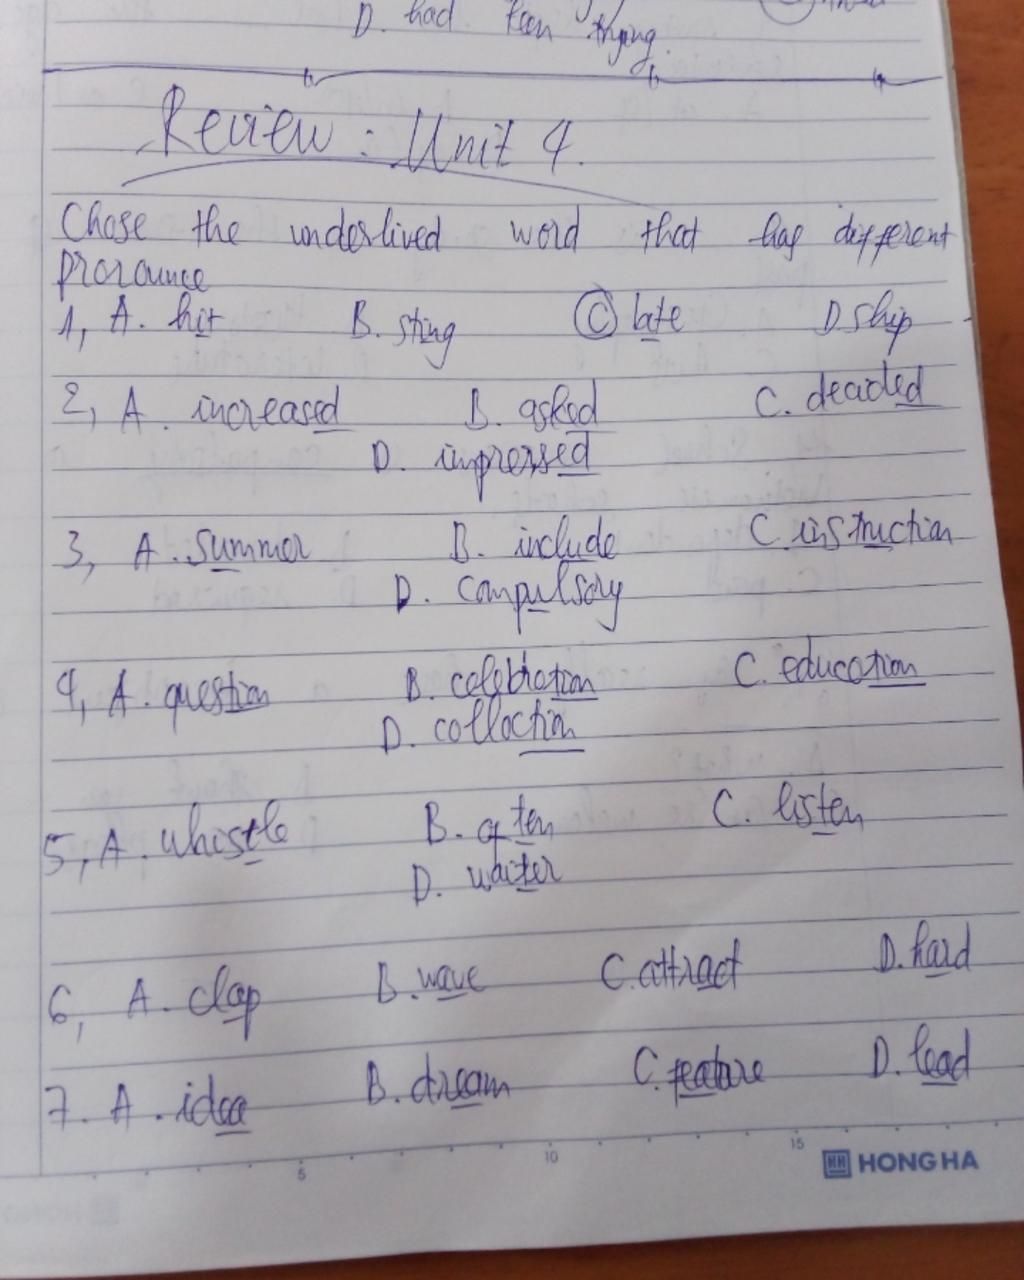 D. had been trying.
Review : Unit 4.
Chose the underlived word that has different
pronounce
1, A. hit B. sting C late D ship
2, A. increased B. asked C. decided
D. impressed
3, A. summer B. include C. instruction
D. compulsory
4, A. question B. celebration C. education
D. collection
5, A. whistle B. often C. listen
D. waiter
6, A. clap B. wave C. attract D. hard
7. A. idea B. dream C. feature D. lead
5 10 15
HH HONG HA